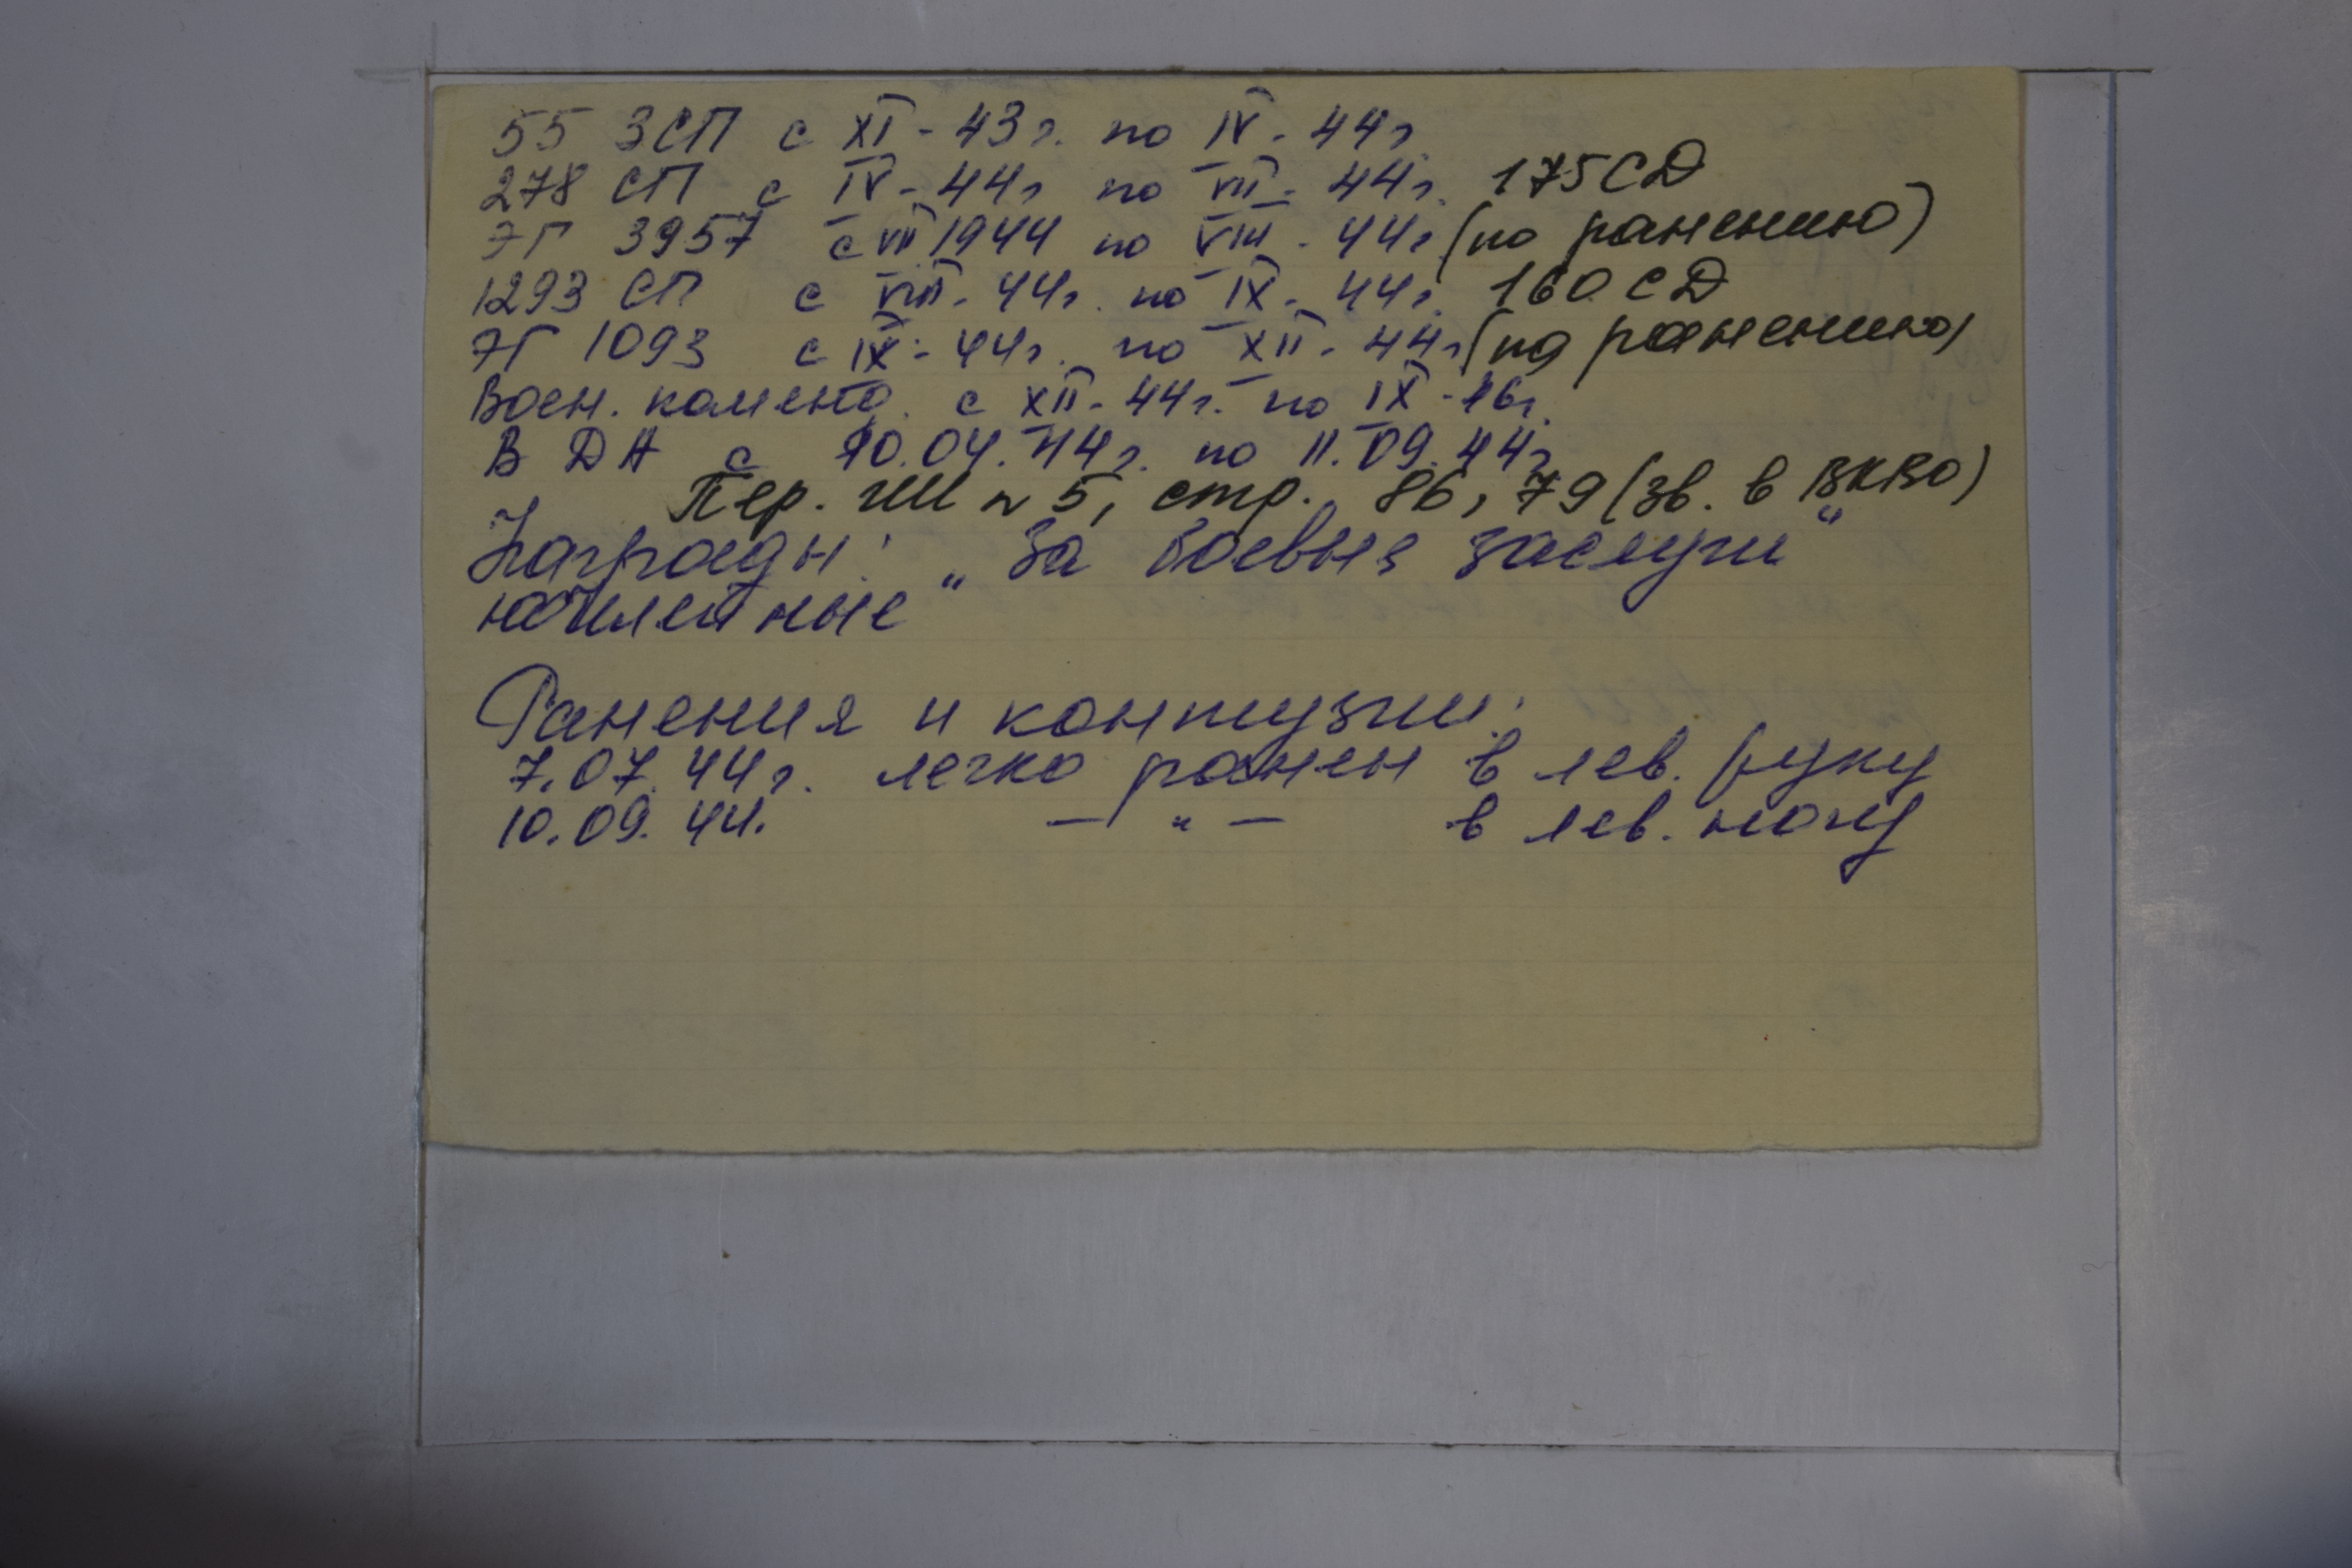 55 ЗСП с XI - 43г. по IV - 44г.
278 СП с IV - 44г по VII - 44г. 175 СД
ЭГ 3957 с VII 1944 по VIII - 44г (по ранению)
1293 СП с VIII - 44г. по IX - 44г. 160 СД
ЭГ 1093 с IX - 44г. по XII - 44г (по ранению)
Воен. коменд. с XII - 44г. по IX - 46г.
В ДА с 10.04.44г. по 11.09.44г
Пер. №5, стр. 86, 79 (зв. в ВКВО)
Награды: „За боевые заслуги“
юбилейные“
Ранения и контузии:
7.07.44г. легко ранен в лев. руку
10.09.44. — „ — в лев. ногу